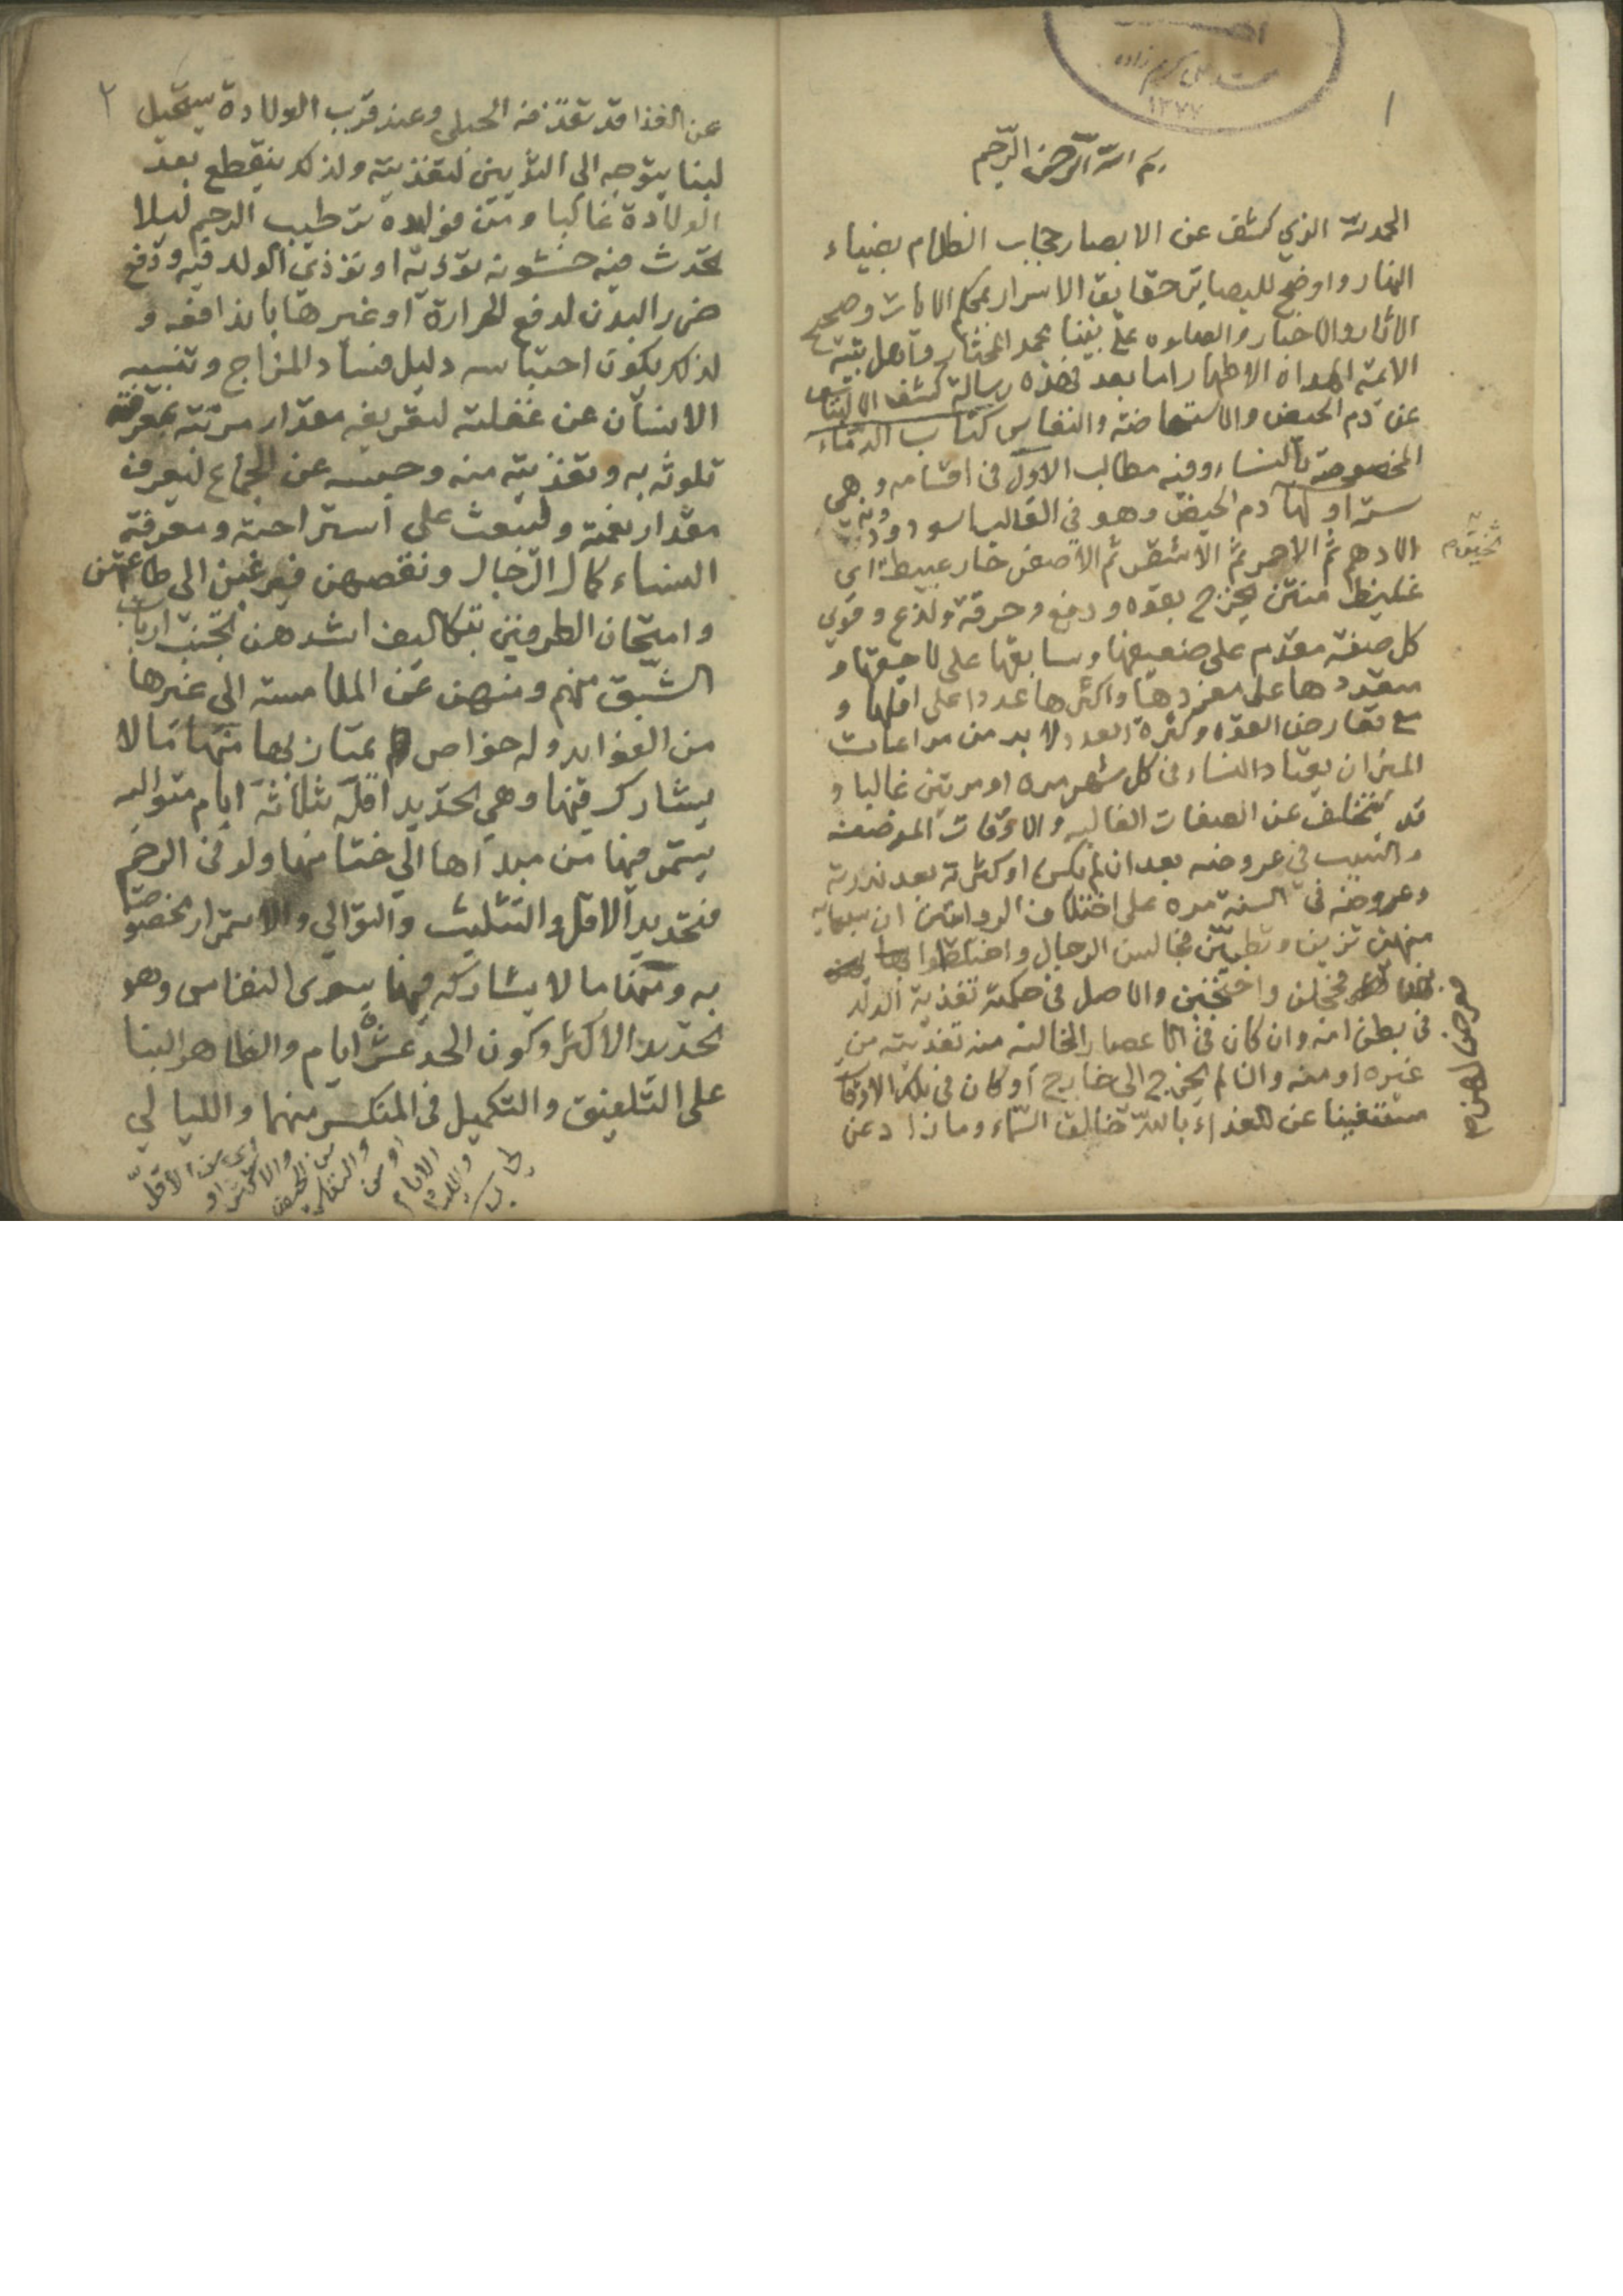 ١
محمد علي كريم زاده
١٣٧٧
بسم الله الرحمن الرحيم
الحمد لله الذي كشف عن الابصار حجاب الظلام بضياء
النهار واوضح للبصاير حقايق الاسرار بمحكم الايات وصحيح
الاثار والاخبار والصلوه على نبينا محمد المختار واهل بيته
الائمة الهداة الاطهار اما بعد فهذه رسالة كشف الالتباس
عن دم الحيض والاستحاضة والنفاس كتاب الدماء
المخصوصة بالنساء وفيه مطالب الاول في اقسامه وهي
ستة اولها دم الحيض وهو في الغالب اسود
الادهم ثم الاحمر ثم الاشقر ثم الاصفر حار عبيط اي
غليظ منتن يخرج بقوه ودفع وحرقة ولذع وقوي
كل صفة مقدم على ضعيفها وسابقها على لاحقها و
متعددها على مفردها واكثرها عددا على اقلها و
مع تعارض القوه وكثرة العدد لا بد من مراعات
الميزان يعتاد النساء في كل شهر مره او مرتين غالبا و
قد يتخلف عن الصفات الغالبه والاوقات
والسبب في عروضه بعد ان لم يكن او كثرته بعد ندرته
وعروضه في السنة مرة على اختلاف الروايتين ان
منهن تزين وتطيبن مجالس الرجال واختلطوا
فخجلن واختجبن والاصل في حكمة تغذية الولد
في بطن امه وان كان في الاعصار الخالية منه تغذيته من
غيره او منه وان لم يخرج الى خارج او كان في تلك الاوقات
مستغنيا عن الغذاء بالله خالق السماء وما زاد عن
٢
عن الغذا قد تقذفه الحبلى وعند قرب الولادة يستحيل
لبنا يتوجه الى الثديين لتغذيته ولذلك ينقطع بعد
الولادة غالبا ومن فوايده ترطيب الرحم ليلا
تحدث فيه خشونه تؤذيه او تؤذي الولد فيه ودفع
ضرر البدن لدفع الحرارة او غيرها باندافعه و
لذلك يكون احتباسه دليل فساد المزاج وتنبيه
الانسان عن غفلته لتعريفه مقدار مرتبته بمعرفة
تلوثه به وتغذيته منه وحبسه عن الجماع ليعرف
مقدار نعمته ولتبعث على استراحته ومعرفة
النساء كمال الرجال ونقصهن فيرغبن الى طاعتهن
وامتحان الطرفين بتكاليف اشدهن تجنب ارباب
الشبق منهم ومنهن عن الملامسه الى غيرها
من الفوايد وله خواص يمتاز بها منها ما لا
يشارك فيها وهي تحديد اقله بثلاثة ايام متواليه
يستمر فيها من مبداها الى ختامها ولو في الرحم
فتحديد الاقل والتثليث والتوالي والاستمرار مخصوصا
به ومنها ما لا يشاركه فيها سوى النفاس وهو
تحديد الاكثر وكون الحد عشرة ايام والظاهر البنا
على التلفيق والتكميل في المنكسر منهما والليالي
اي من الاقل
والاكثر او
من الحيض
والنفاس
او من
الايام